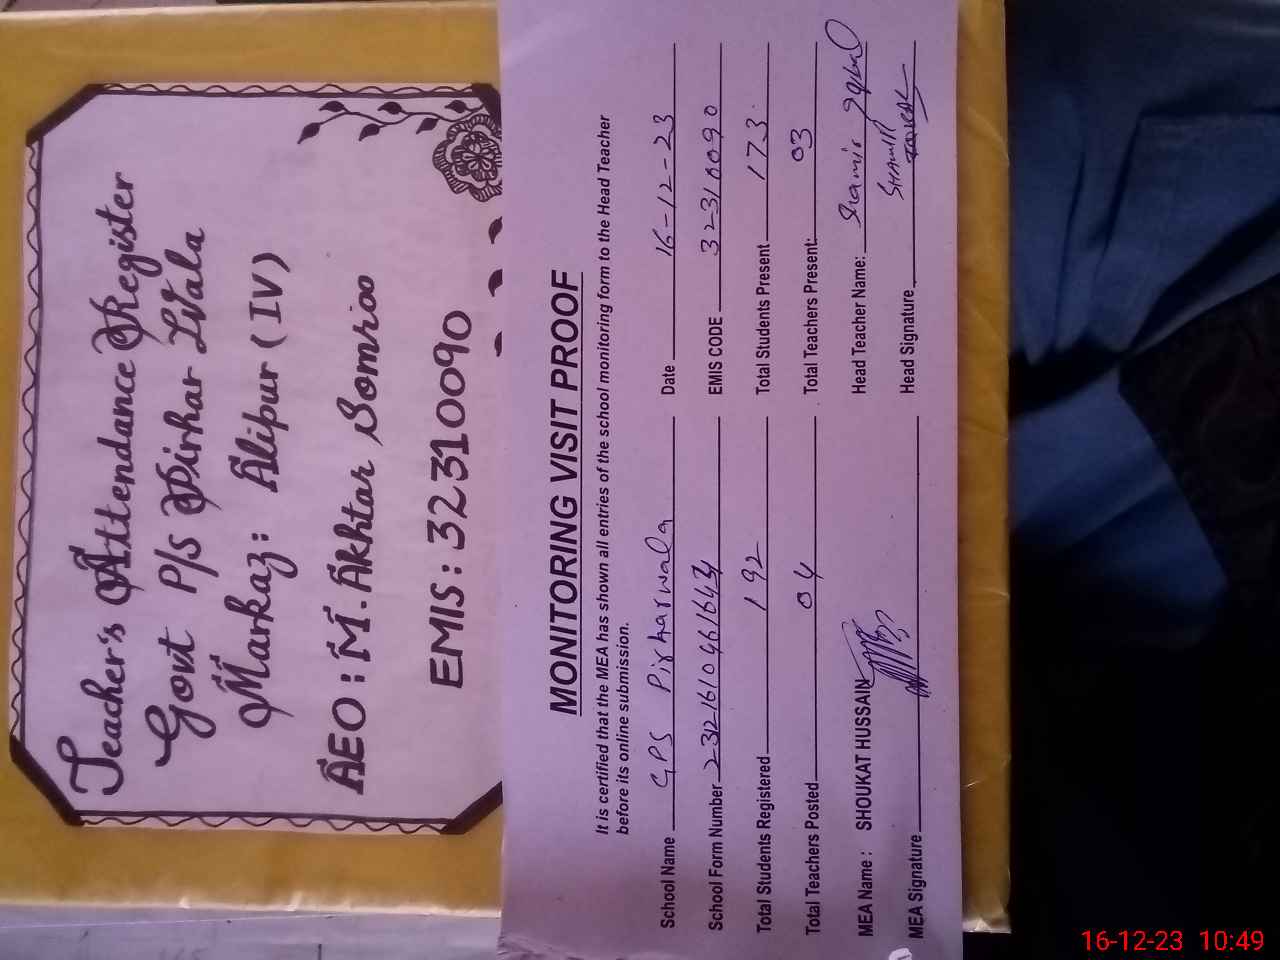 Teacher's Attendance Register
Govt P/S Pirhar Wala
Markaz: Alipur (IV)
AEO: M. Akhtar Somroo
EMIS: 32310090
MONITORING VISIT PROOF
It is certified that the MEA has shown all entries of the school monitoring form to the Head Teacher
before its online submission.
School Name GPS Pirharwala Date 16-12-23
School Form Number EMIS CODE 32310090
Total Students Registered 192 Total Students Present 173
Total Teachers Posted 04 Total Teachers Present: 03
MEA Name: SHOUKAT HUSSAIN Head Teacher Name: Shamir Iqbal
MEA Signature Head Signature
16-12-23 10:49